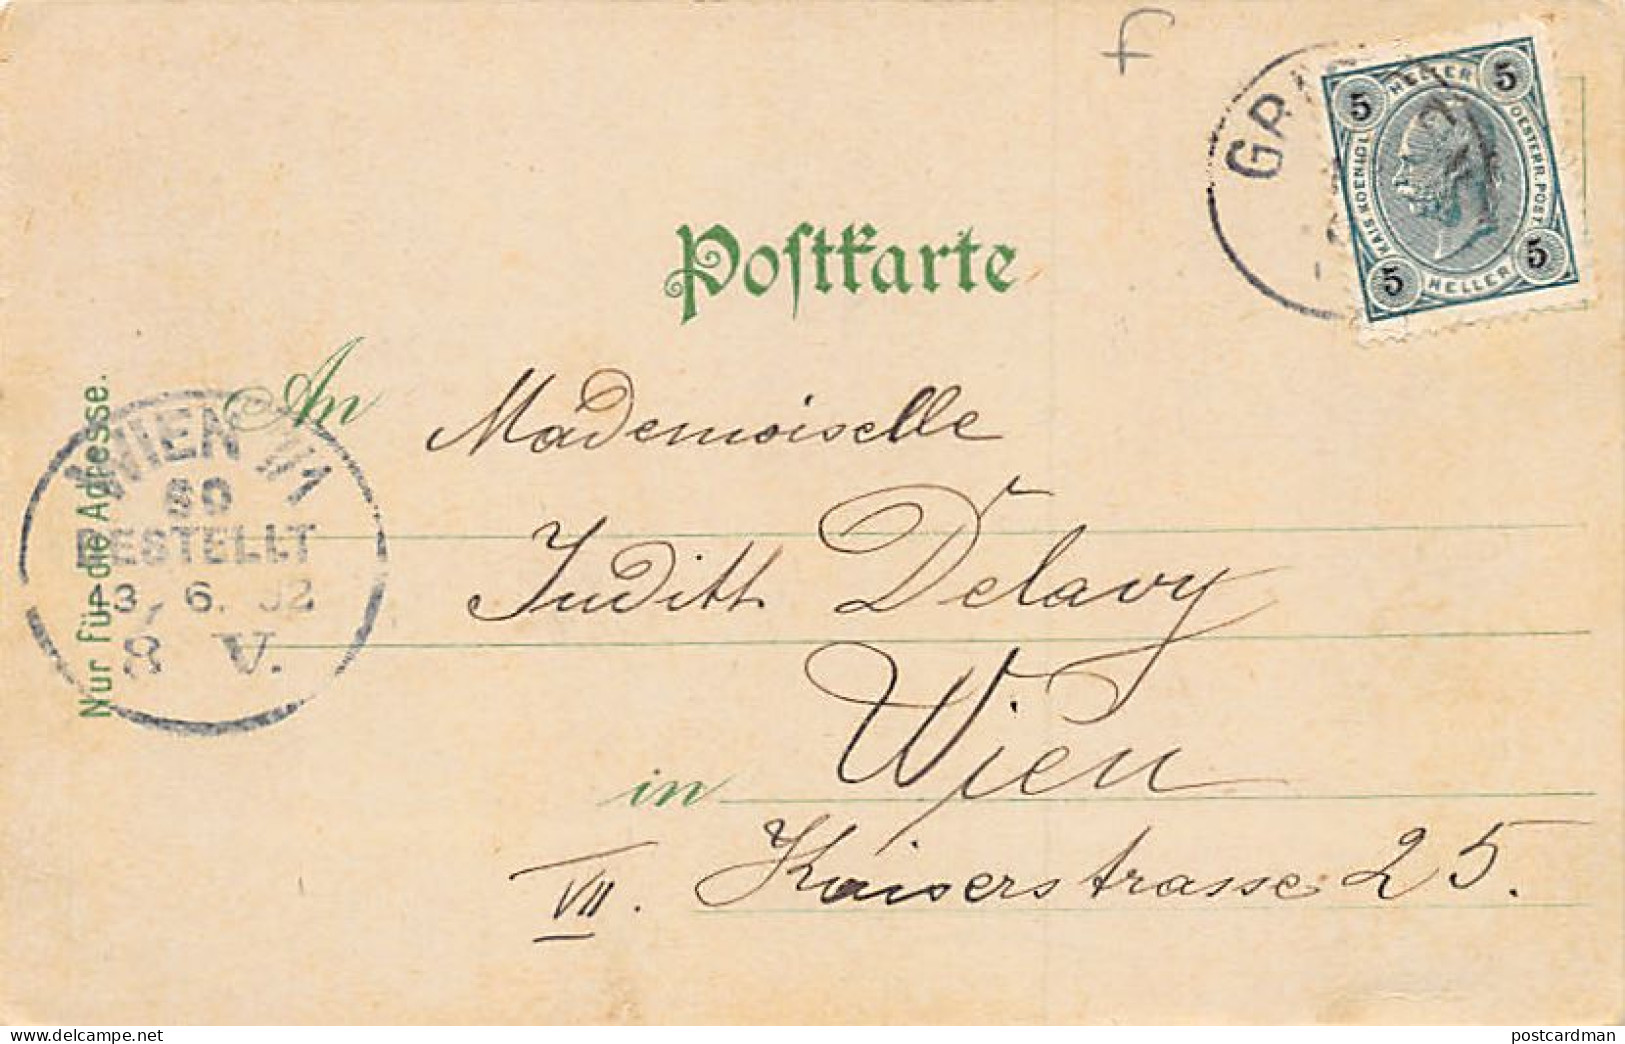 f
5 HELLER 5
KAIS. KOENIGL.
OESTERR. POST
5 HELLER 5
Postkarte
Nur für die Adresse.
An Mademoiselle
WIEN
BESTELLT
6. 02
8 V.
Judith Delavy
in Wien
VII. Kaiserstrasse 25.
www.delcampe.net
postcardman